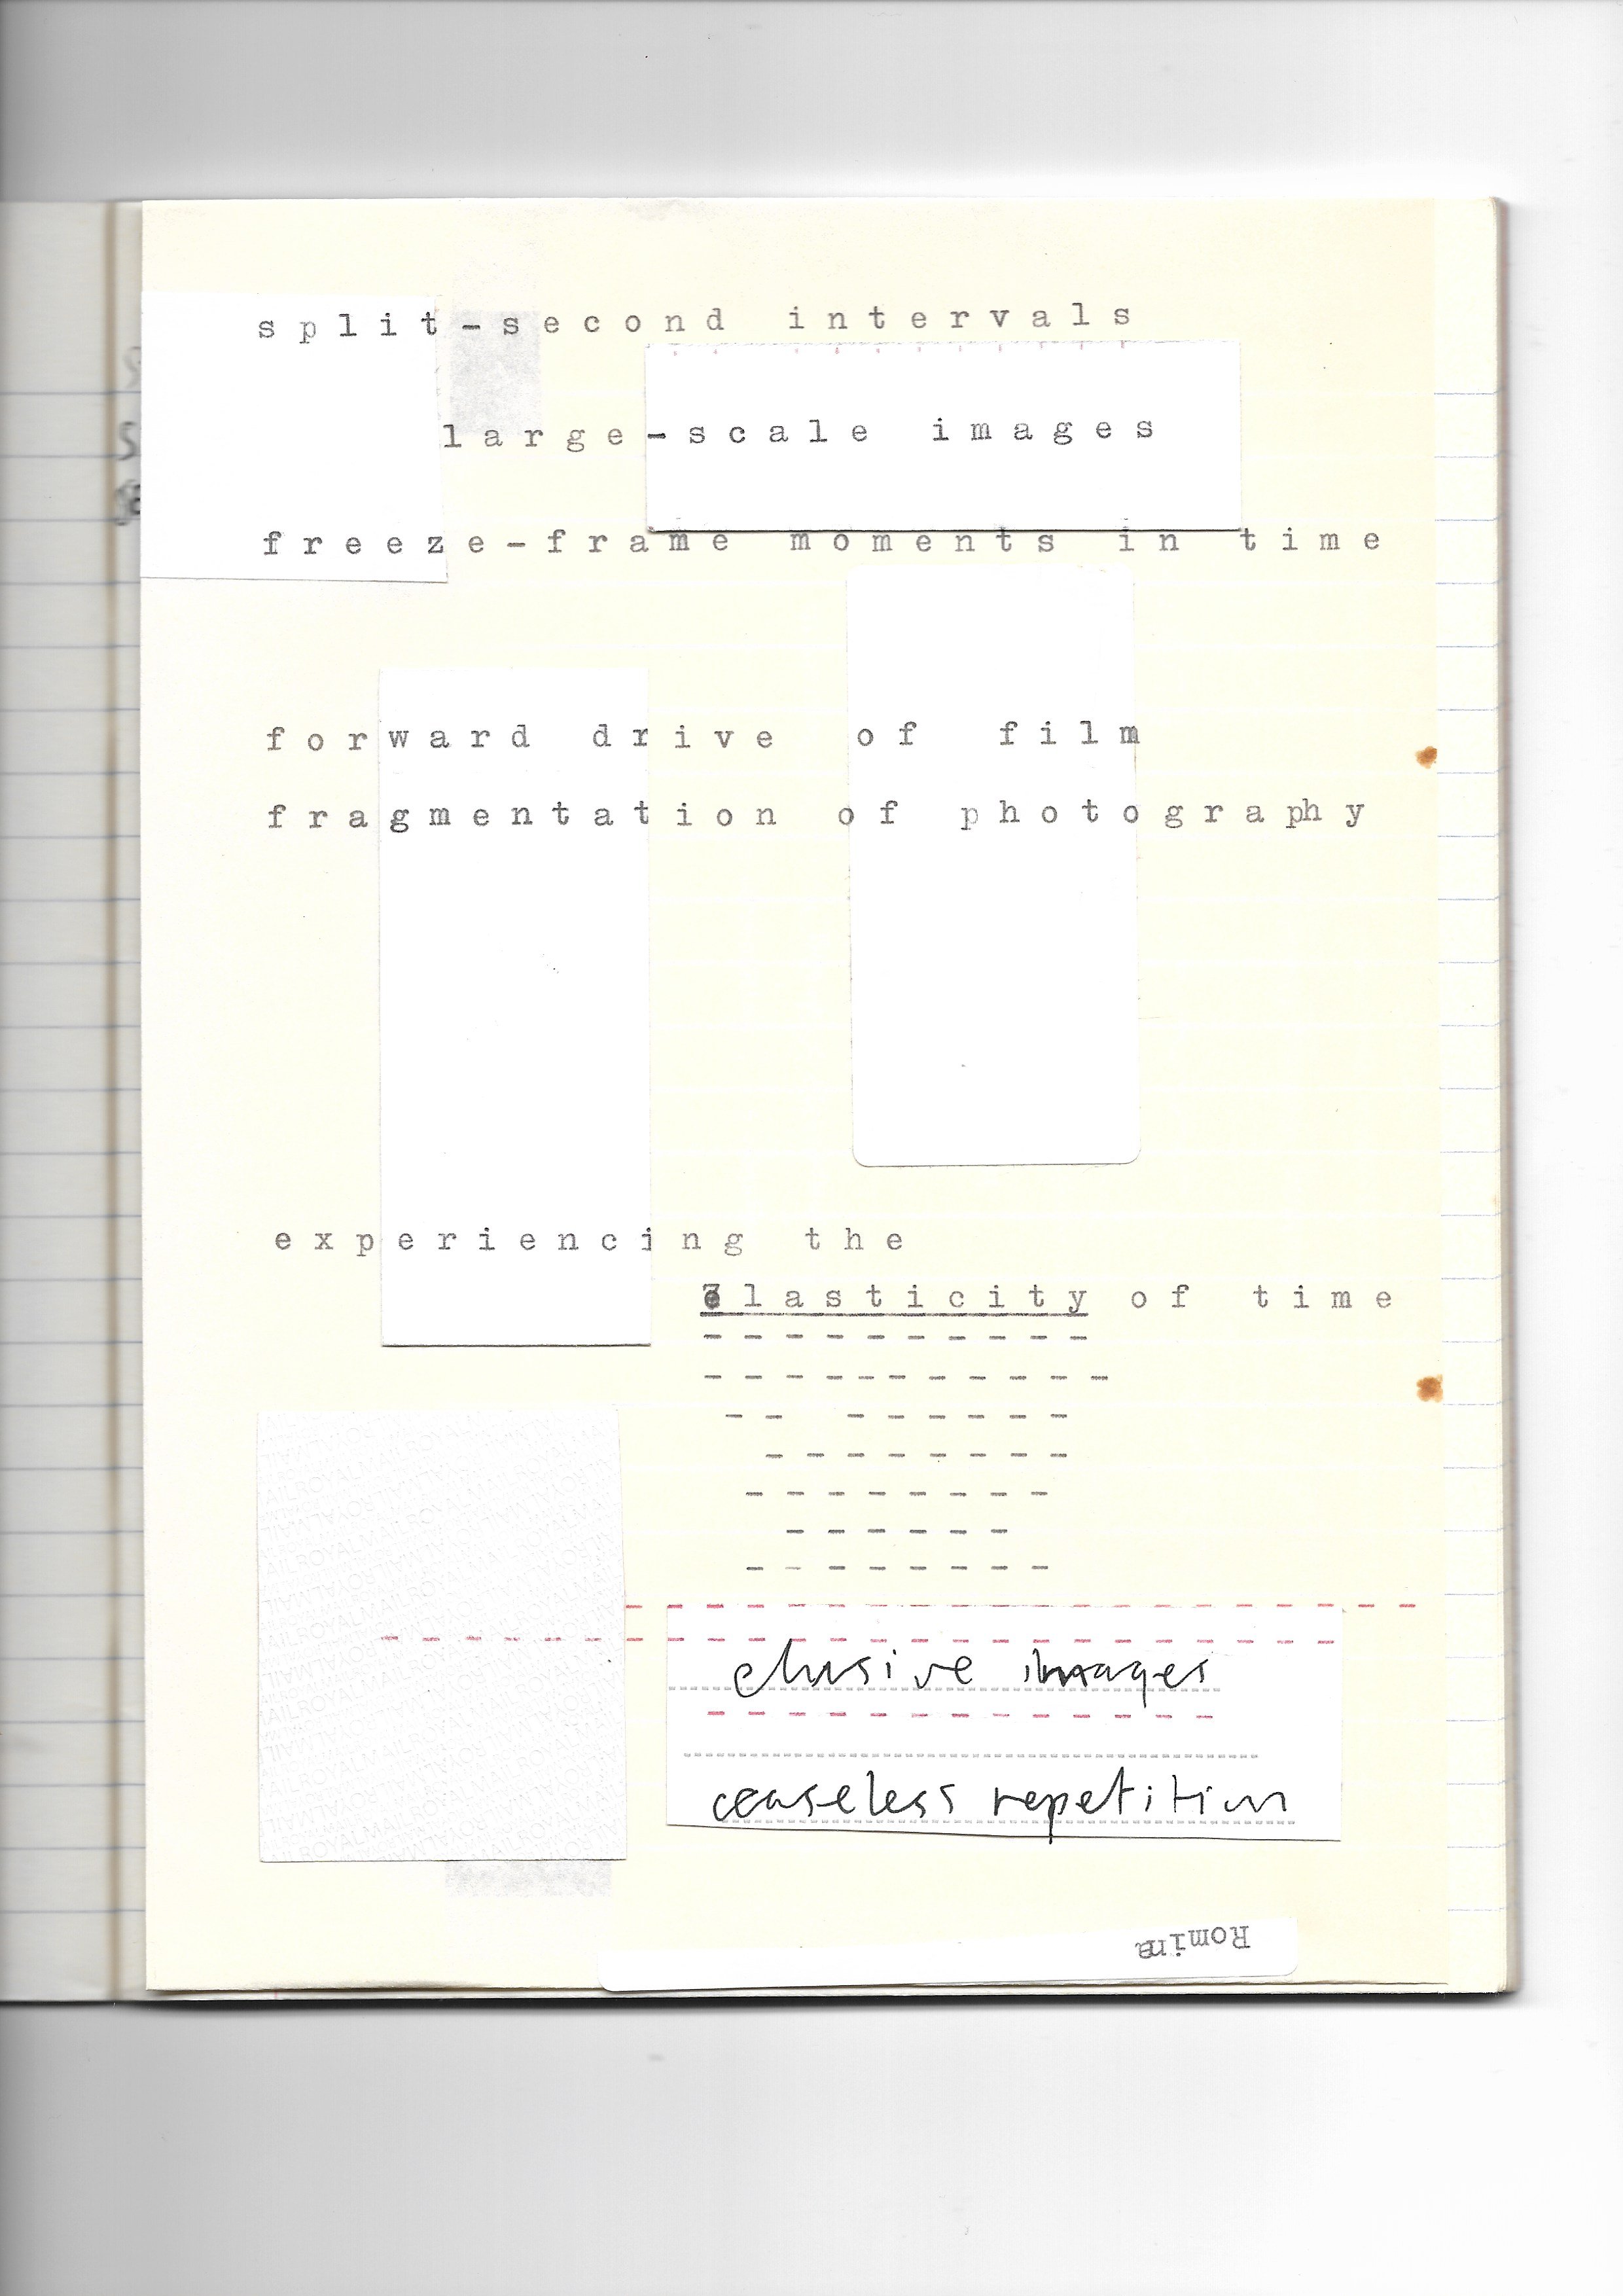 split-second intervals
large-scale images
freeze-frame moments in time
forward drive of film
fragmentation of photography
experiencing the
elasticity of time
elusive images
ceaseless repetition
Romina